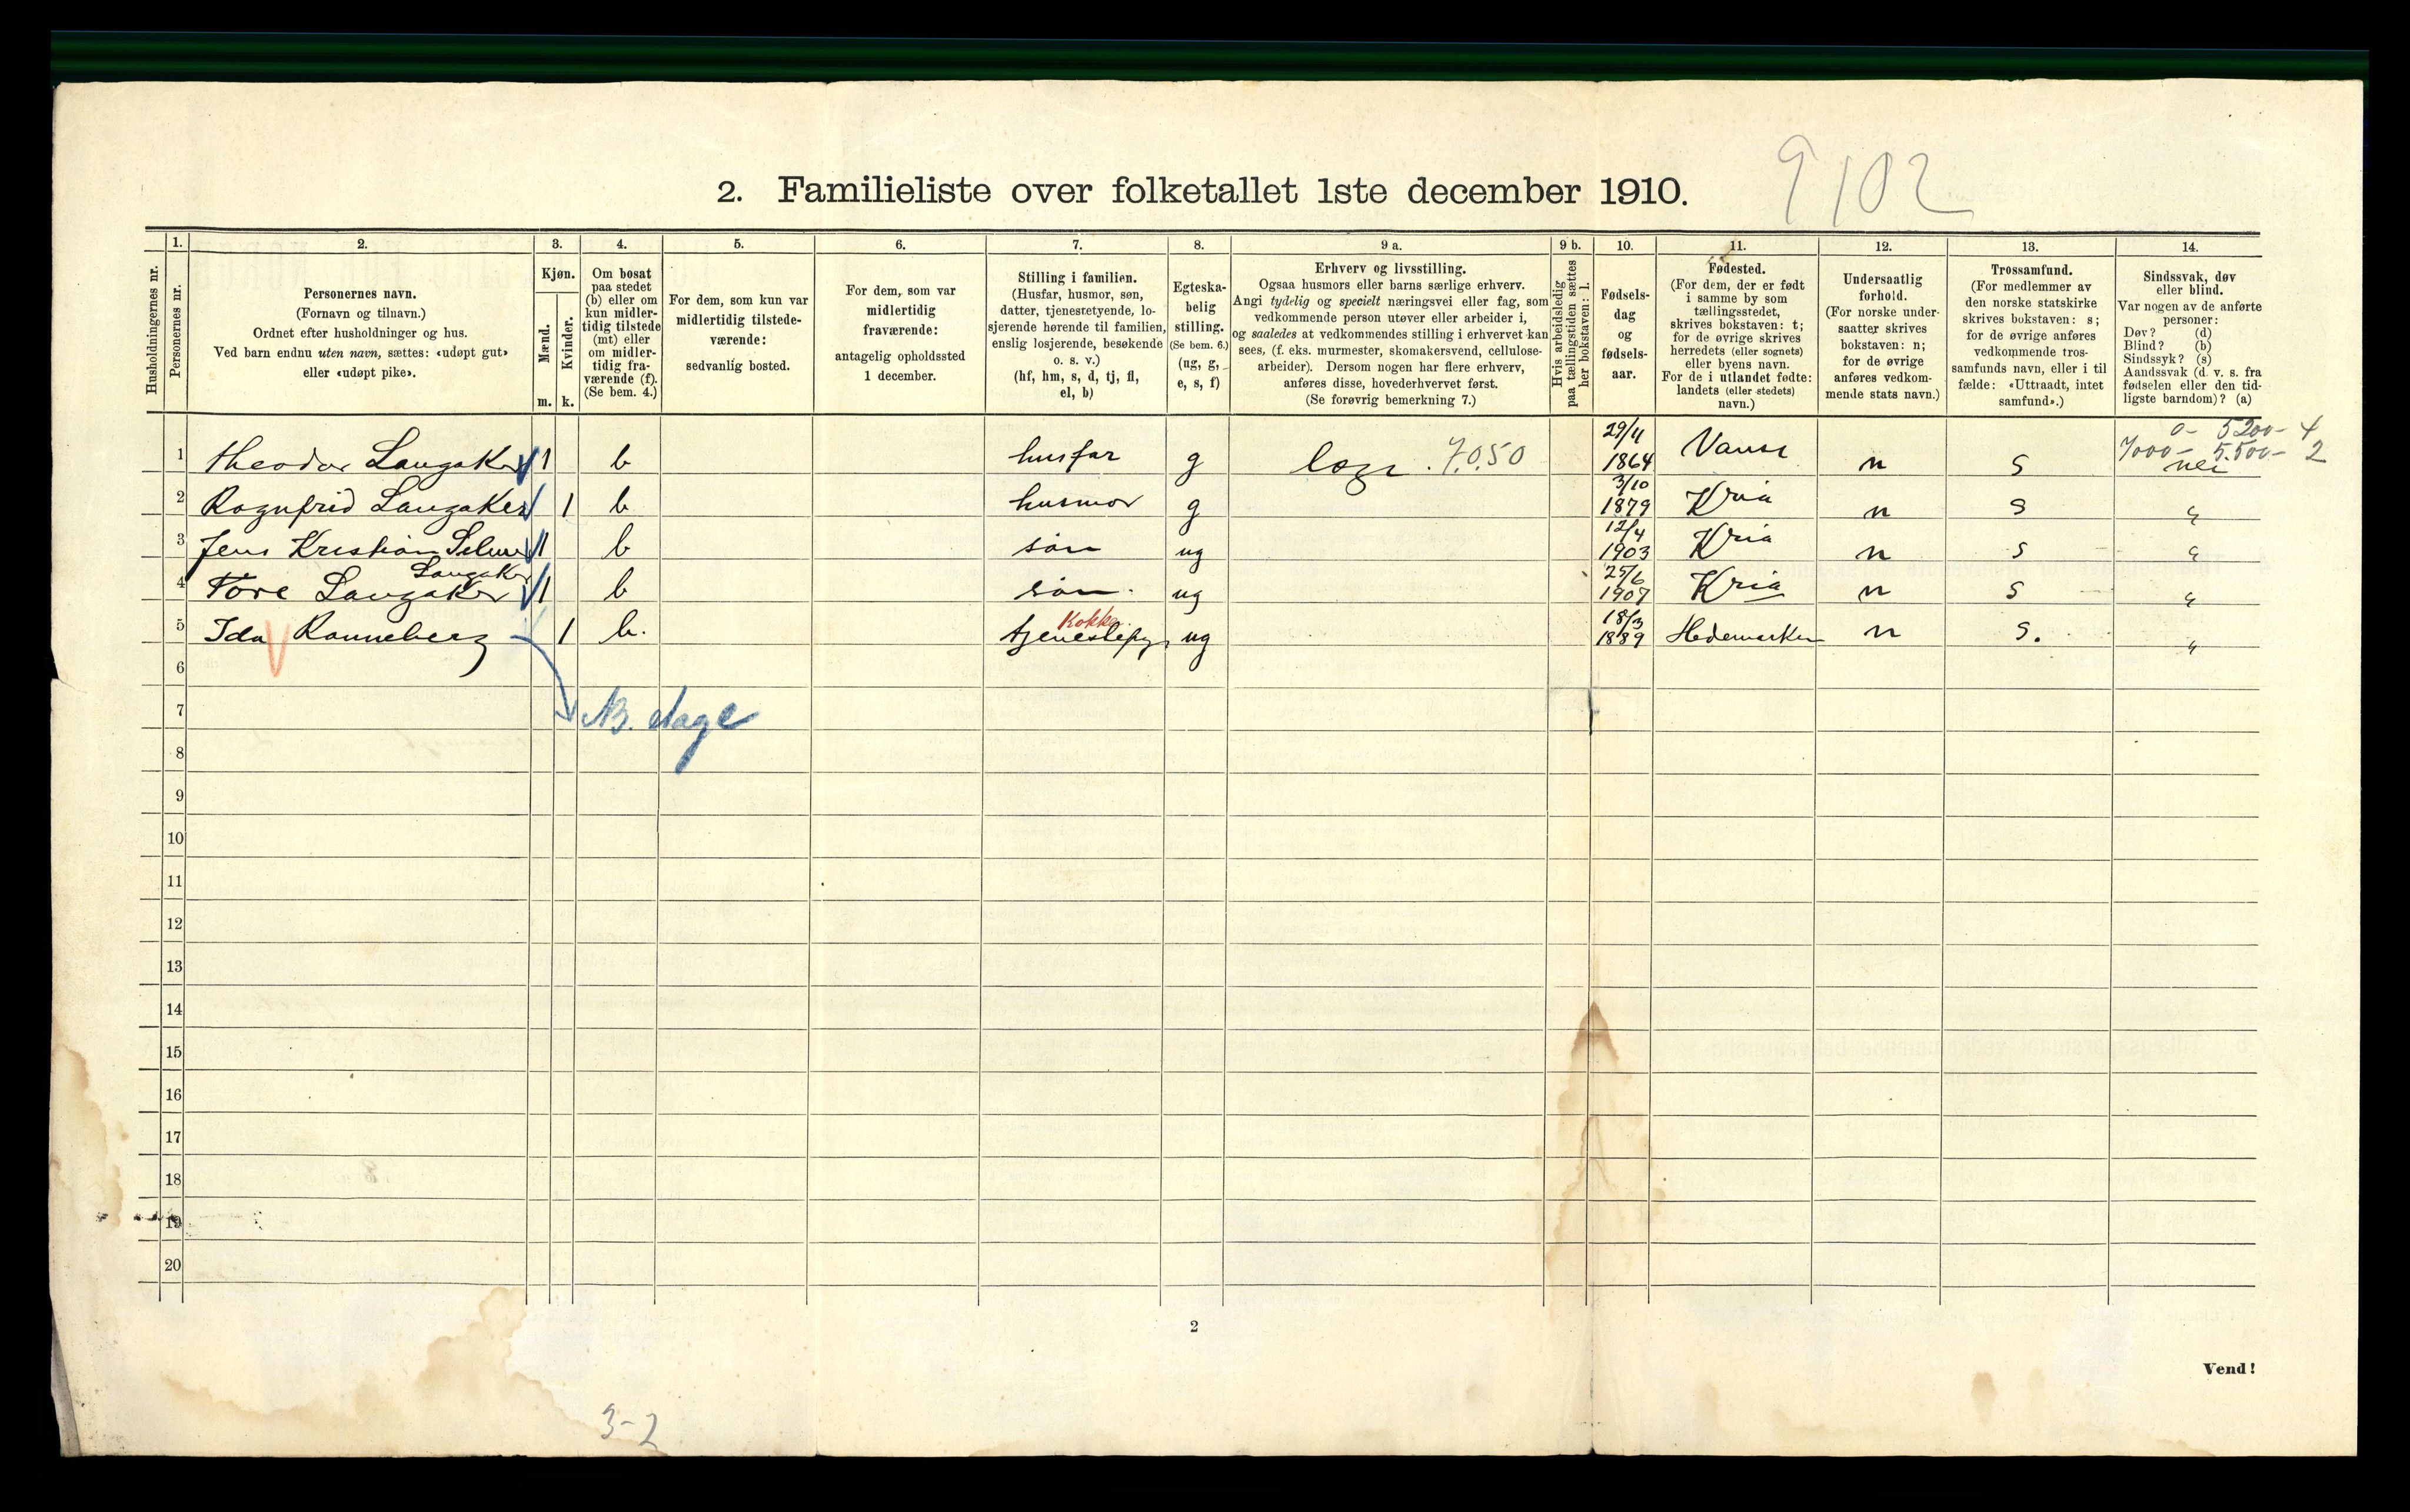 9102
2. Familieliste over folketallet 1ste december 1910.
Husholdningernes nr.
1.
Personernes nr.
2.
Personernes navn.
(Fornavn og tilnavn.)
Ordnet efter husholdninger og hus.
Ved barn endnu uten navn, sættes: «udøpt gut»
eller «udøpt pike».
3.
Kjøn.
Mænd.
Kvinder.
m. k.
4.
Om bosat
paa stedet
(b) eller om
kun midler-
tidig tilstede
(mt) eller
om midler-
tidig fra-
værende (f).
(Se bem. 4.)
5.
For dem, som kun var
midlertidig tilstede-
værende:
sedvanlig bosted.
6.
For dem, som var
midlertidig
fraværende:
antagelig opholdssted
1 december.
7.
Stilling i familien.
(Husfar, husmor, søn,
datter, tjenestetyende, lo-
sjerende hørende til familien,
enslig losjerende, besøkende
o. s. v.)
(hf, hm, s, d, tj, fl,
el, b)
8.
Egteska-
belig
stilling.
(Se bem. 6.)
(ug, g,
e, s, f)
9 a.
Erhverv og livsstilling.
Ogsaa husmors eller barns særlige erhverv.
Angi tydelig og specielt næringsvei eller fag, som
vedkommende person utøver eller arbeider i,
og saaledes at vedkommendes stilling i erhvervet kan
sees, (f. eks. murmester, skomakersvend, cellulose-
arbeider). Dersom nogen har flere erhverv,
anføres disse, hovederhvervet først.
(Se forøvrig bemerkning 7.)
9 b.
Hvis arbeidsledig
paa tællingstiden sættes
her bokstaven: l.
10.
Fødsels-
dag
og
fødsels-
aar.
11.
Fødested.
(For dem, der er født
i samme by som
tællingsstedet,
skrives bokstaven: t;
for de øvrige skrives
herredets (eller sognets)
eller byens navn.
For de i utlandet fødte:
landets (eller stedets)
navn.)
12.
Undersaatlig
forhold.
(For norske under-
saatter skrives
bokstaven: n;
for de øvrige
anføres vedkom-
mende stats navn.)
13.
Trossamfund.
(For medlemmer av
den norske statskirke
skrives bokstaven: s;
for de øvrige anføres
vedkommende tros-
samfunds navn, eller i til
fælde: «Uttraadt, intet
samfund».)
14.
Sindssvak, døv
eller blind.
Var nogen av de anførte
personer:
Døv? (d)
Blind? (b)
Sindssyk? (s)
Aandssvak (d. v. s. fra
fødselen eller den tid-
ligste barndom)? (a)
0- 5200- 4
7000- 5.500- 2
1 Theodor Langaker 1 b husfar g læge 7050 29/11 1864 Vanse n s nei
2 Ragnfrid Langaker 1 b husmor g 3/10 1879 Kria n s "
3 Jens Kristian Selmer 1 b søn ug 12/4 1903 Kria n s "
Langaker
4 Tore Langaker 1 b søn ug 25/6 1907 Kria n s "
Kokke
5 Ida Ranneberg 1 b. ug 18/3 1889 Hedemarken n s. "
6
7
8
9
10
11
12
13
14
15
16
17
18
19
20
2
Vend!
3-2